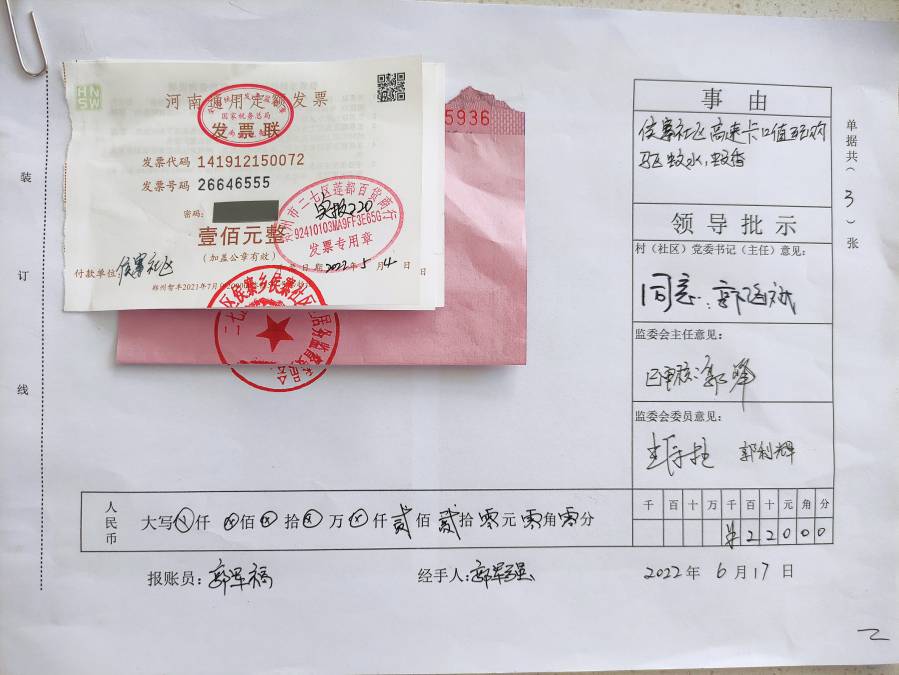 HN
SW
河南通用定额发票
国家税务总局
发票联
发票代码 141912150072
发票号码 26646555
密码:
壹佰元整
(加盖公章有效)
付款单位: 侯寨社区
日期 2022年5月4日
实报220
郑州市二七区莲都百货商行
92410103MA9FF3E65G
发票专用章
5936
二七区侯寨乡侯寨社区居务监督委员会
装
订
线
事由
侯寨社区高速卡口值班购
驱蚊水,蚊香
领导批示
村(社区)党委书记(主任)意见:
同意:
监委会主任意见:
已审核:郭峰
监委会委员意见:
郭利辉
单据共(3)张
人民币
大写ⓧ仟ⓧ佰ⓧ拾ⓧ万ⓧ仟贰佰贰拾零元零角零分
千百十万千百十元角分
¥22000
报账员:郭军福
经手人:郭军强
2022年6月17日